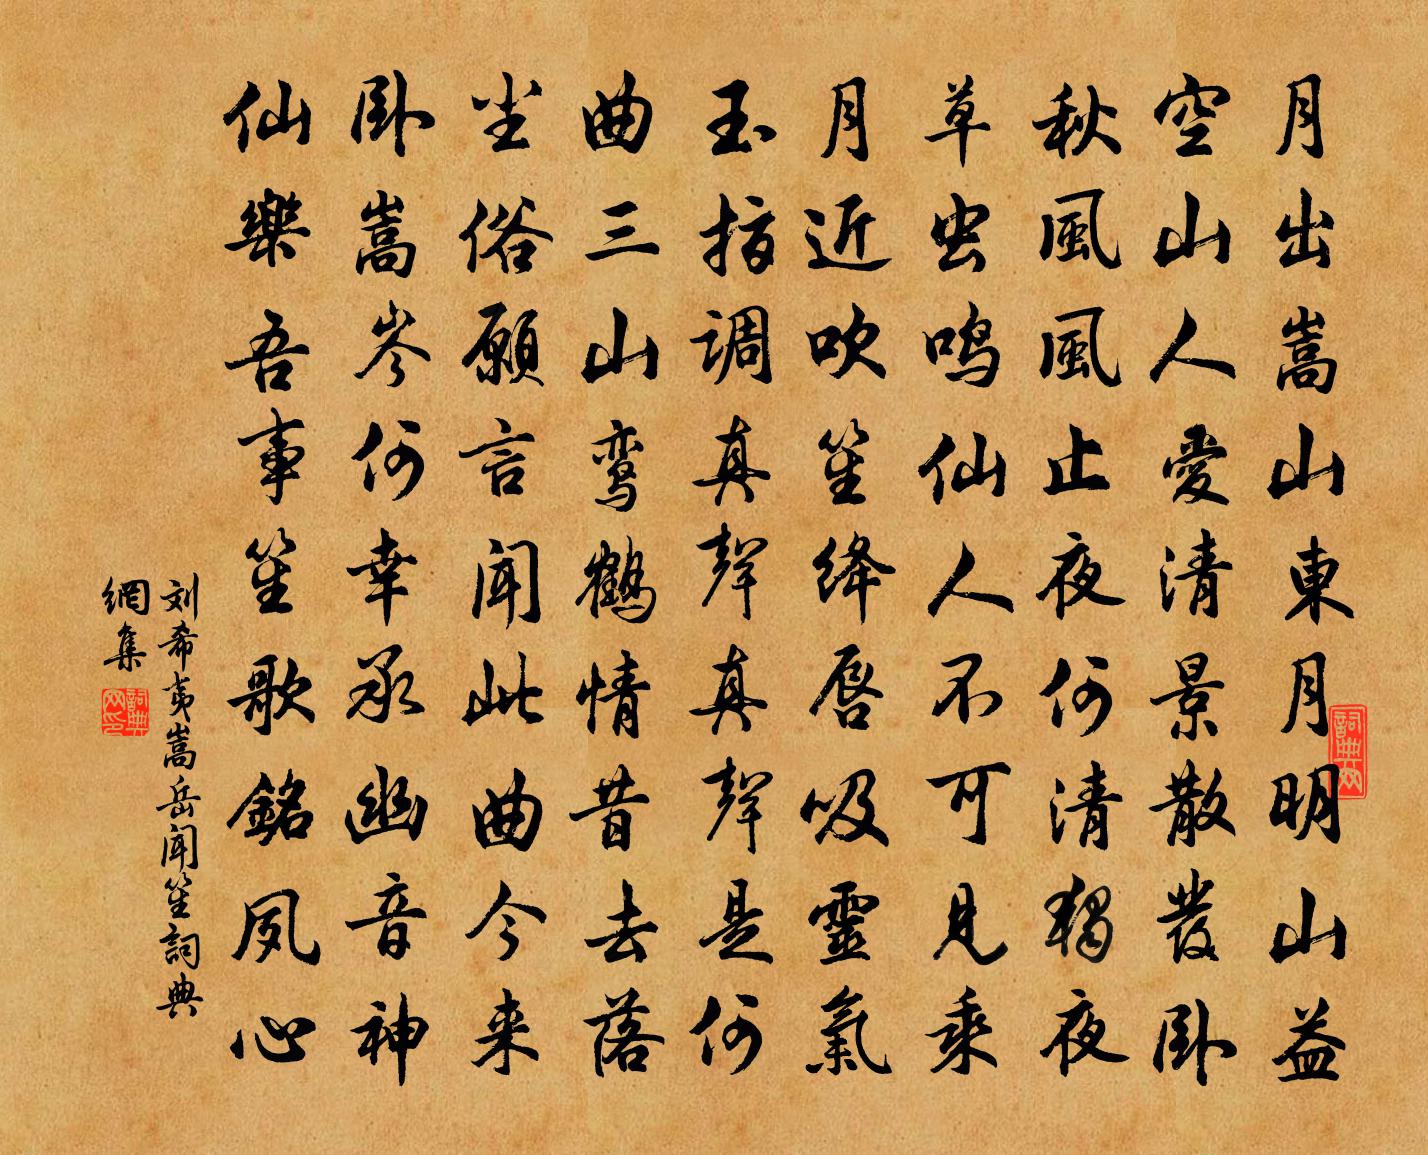 月出嵩山東月明山益
空山人愛清景散發卧
秋風風止夜何清獨夜
草虫鳴仙人不可見乘
月近吹笙絳唇吸靈氣
玉指調真聲真聲是何
曲三山鸾鶴情昔去落
尘俗願言聞此曲今来
卧嵩岑何幸承幽音神
仙樂吾事笙歌銘夙心
刘希夷嵩岳聞笙詞典
網集
詞典网
詞典网印